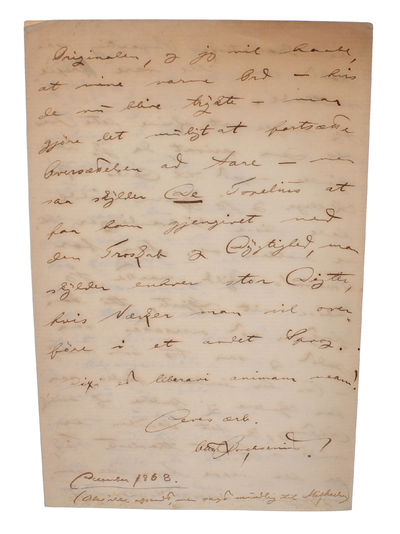 Originalen, og jeg vil haabe,
at mine varme Ord – hvis
de nu blive trykte – maa
gjøre det muligt at fortsætte
Oversættelsen ad Aare – men
saa skylder De Topelius at
faa ham gjengivet med
den Troskab og Dygtighed, man
skylder enhver stor Digter,
hvis Værker man vil over-
føre i et andet Sprog.
ixi et liberavi animam meam!
Deres ærb.
1868.